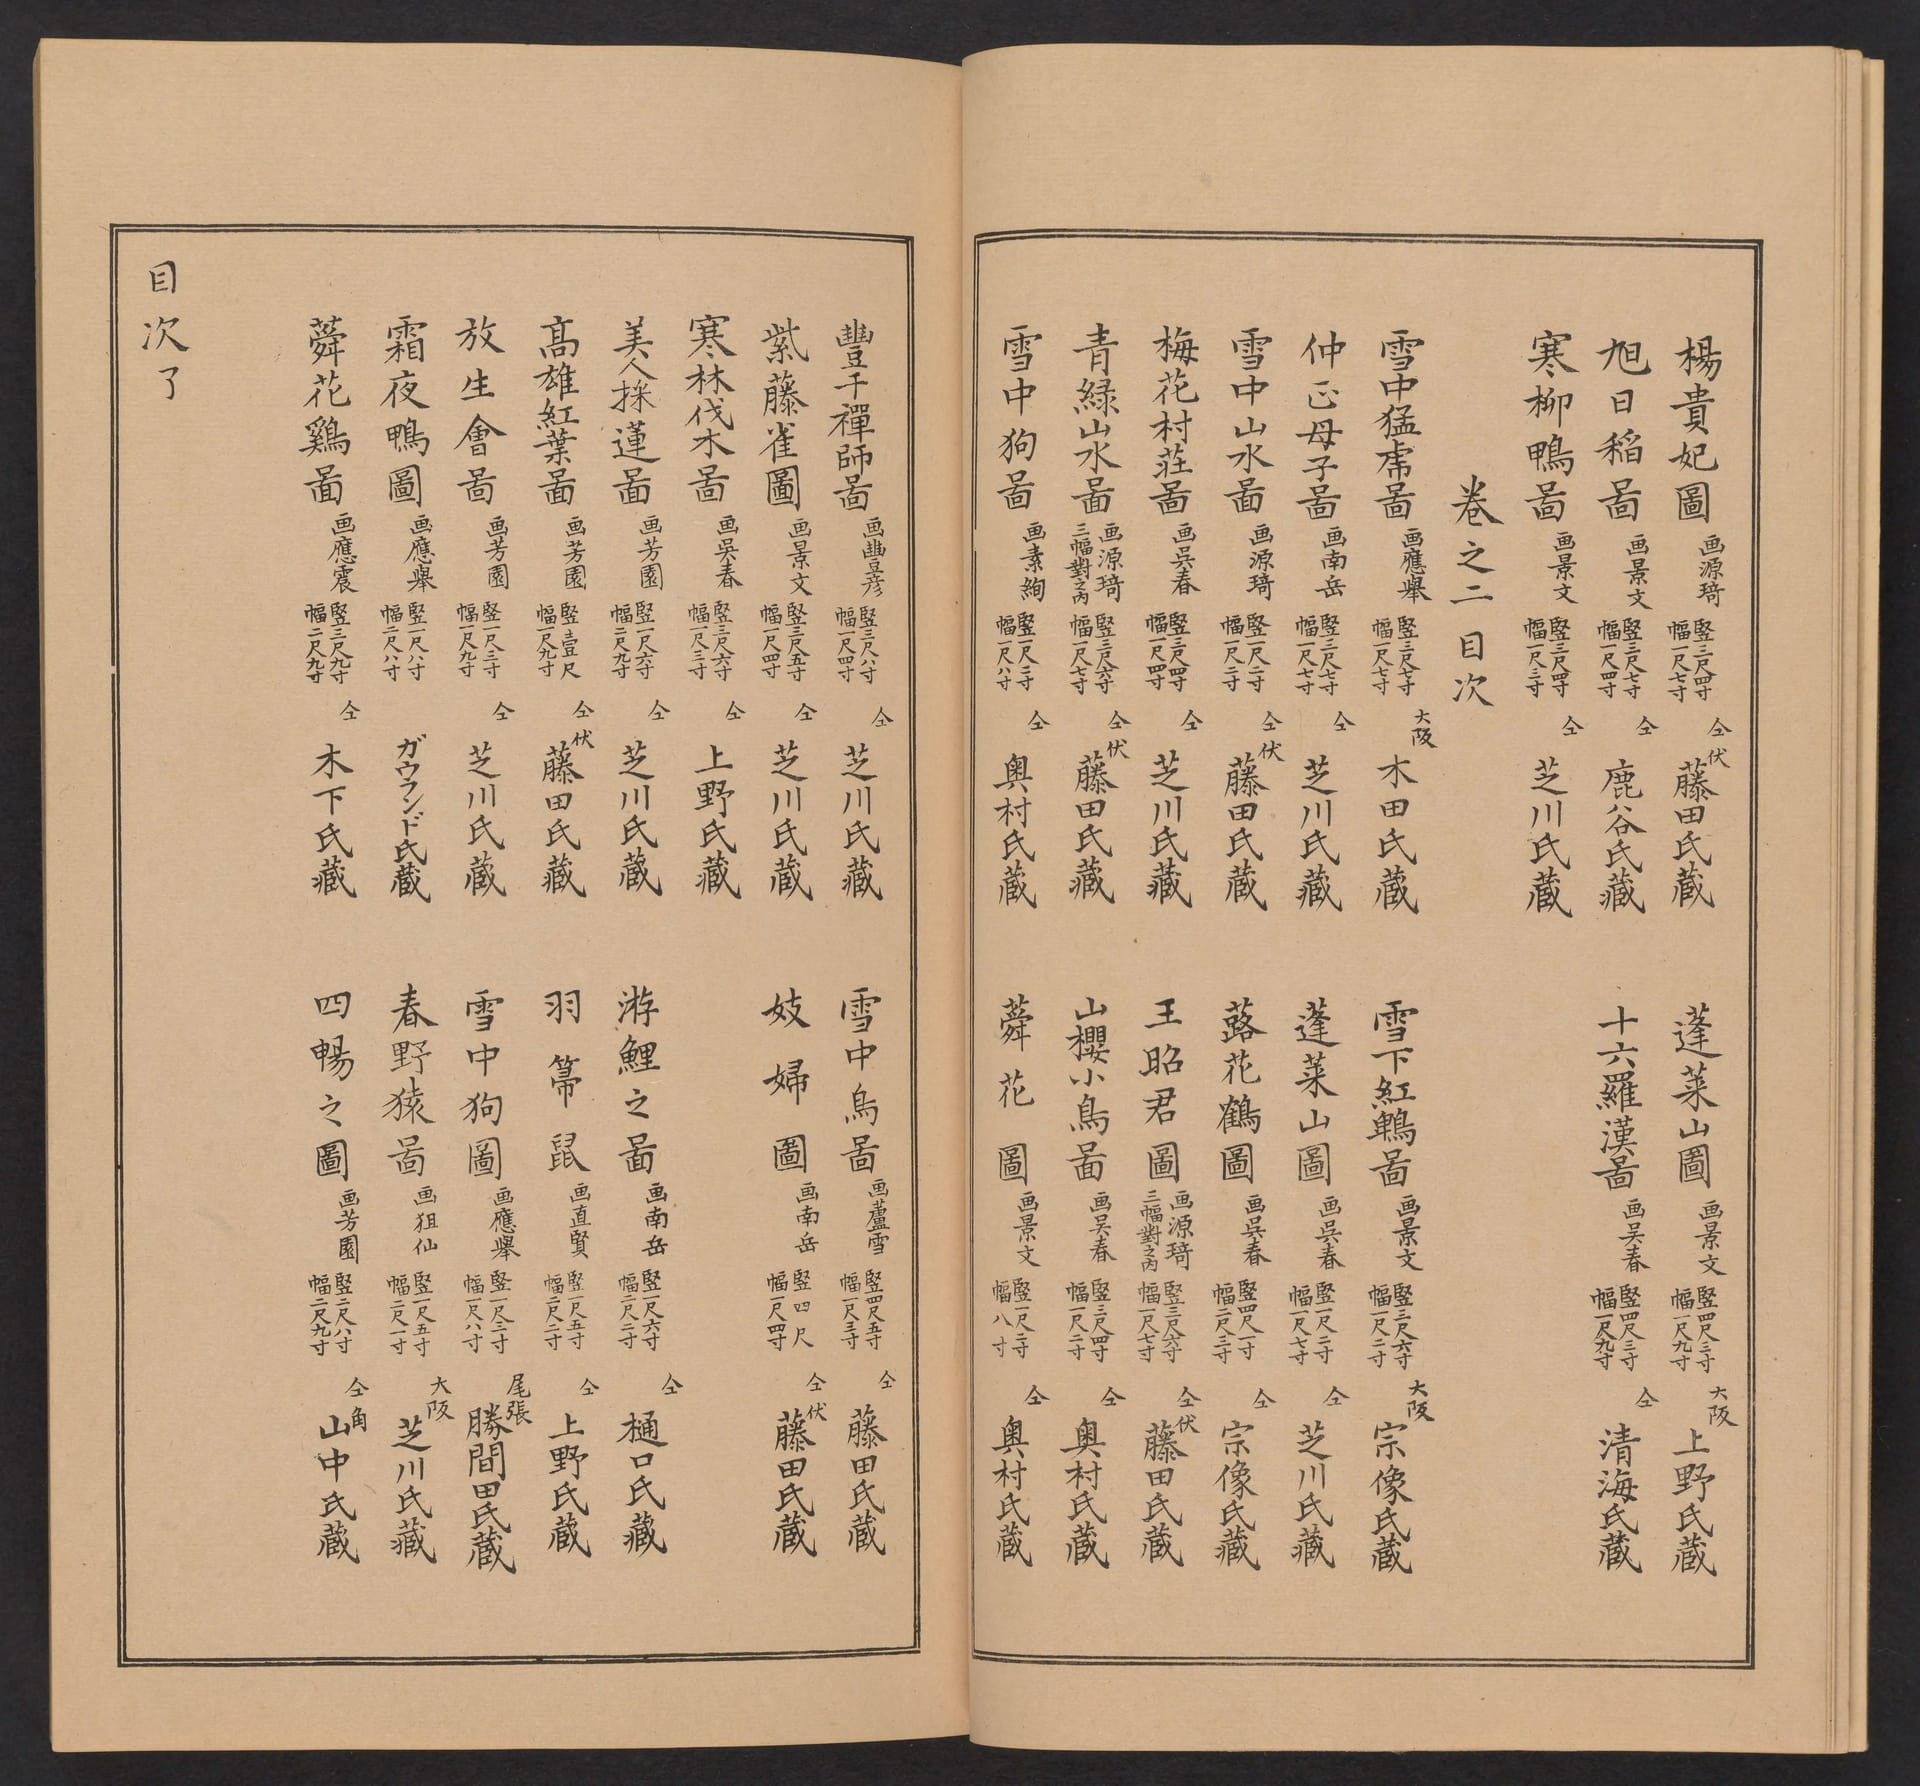 楊貴妃圖 画源琦 竪三尺四寸 幅一尺七寸 仝 伏 藤田氏蔵
蓬萊山圖 画景文 竪四尺三寸 幅一尺九寸 大阪 上野氏蔵
旭日稲啚 画景文 竪三尺七寸 幅一尺四寸 仝 鹿谷氏蔵
十六羅漢啚 画吴春 竪四尺三寸 幅一尺九寸 仝 清海氏蔵
寒柳鴨啚 画景文 竪三尺四寸 幅一尺三寸 仝 芝川氏蔵
卷之二 目次
雪中猛虎啚 画應舉 竪三尺七寸 幅一尺七寸 大阪 木田氏蔵
雪下紅鵯啚 画景文 竪三尺六寸 幅一尺二寸 大阪 宗像氏蔵
仲正母子啚 画南岳 竪三尺七寸 幅一尺七寸 仝 芝川氏蔵
蓬萊山圖 画吴春 竪一尺二寸 幅一尺七寸 仝 芝川氏蔵
雪中山水啚 画源琦 竪一尺二寸 幅一尺二寸 仝 伏 藤田氏蔵
蕗花鶴圖 画吴春 竪四尺一寸 幅二尺三寸 仝 宗像氏蔵
梅花村莊啚 画吴春 竪三尺四寸 幅一尺四寸 仝 芝川氏藏
王昭君圖 画源琦 三幅對之内 竪三尺六寸 幅一尺七寸 仝 伏 藤田氏蔵
青緑山水啚 画源琦 三幅對之内 竪三尺六寸 幅一尺七寸 仝 伏 藤田氏藏
山櫻小鳥啚 画吴春 竪三尺四寸 幅一尺二寸 仝 奥村氏蔵
雪中狗啚 画素絢 竪一尺二寸 幅一尺八寸 仝 奥村氏蔵
蕣花圖 画景文 竪一尺二寸 幅八寸 仝 奥村氏蔵
豐干禪師啚 画豐彦 竪三尺八寸 幅一尺四寸 仝 芝川氏蔵
雪中鳥啚 画蘆雪 竪四尺五寸 幅一尺三寸 仝 藤田氏蔵
紫藤雀圖 画景文 竪三尺五寸 幅一尺四寸 仝 芝川氏蔵
妓婦圖 画南岳 竪四尺 幅一尺四寸 仝 伏 藤田氏蔵
寒林伐木啚 画吴春 竪三尺六寸 幅一尺三寸 仝 上野氏蔵
美人採蓮啚 画芳園 竪一尺六寸 幅二尺九寸 仝 芝川氏蔵
游鯉之啚 画南岳 竪一尺六寸 幅二尺二寸 仝 樋口氏藏
髙雄紅葉啚 画芳園 竪壹尺 幅一尺九寸 仝 伏 藤田氏藏
羽箒鼠 画直賢 竪一尺五寸 幅二尺二寸 仝 上野氏蔵
放生會啚 画芳園 竪一尺三寸 幅一尺九寸 仝 芝川氏蔵
雪中狗圖 画應舉 竪一尺三寸 幅一尺八寸 尾張 勝間田氏蔵
霜夜鴨圖 画應舉 竪一尺八寸 幅二尺八寸 ガウランド氏蔵
春野猿啚 画狙仙 竪一尺五寸 幅二尺一寸 大阪 芝川氏藏
蕣花鷄啚 画應震 竪三尺九寸 幅二尺九寸 仝 木下氏藏
四暢之圖 画芳園 竪二尺八寸 幅二尺九寸 仝 角 山中氏蔵
目次了